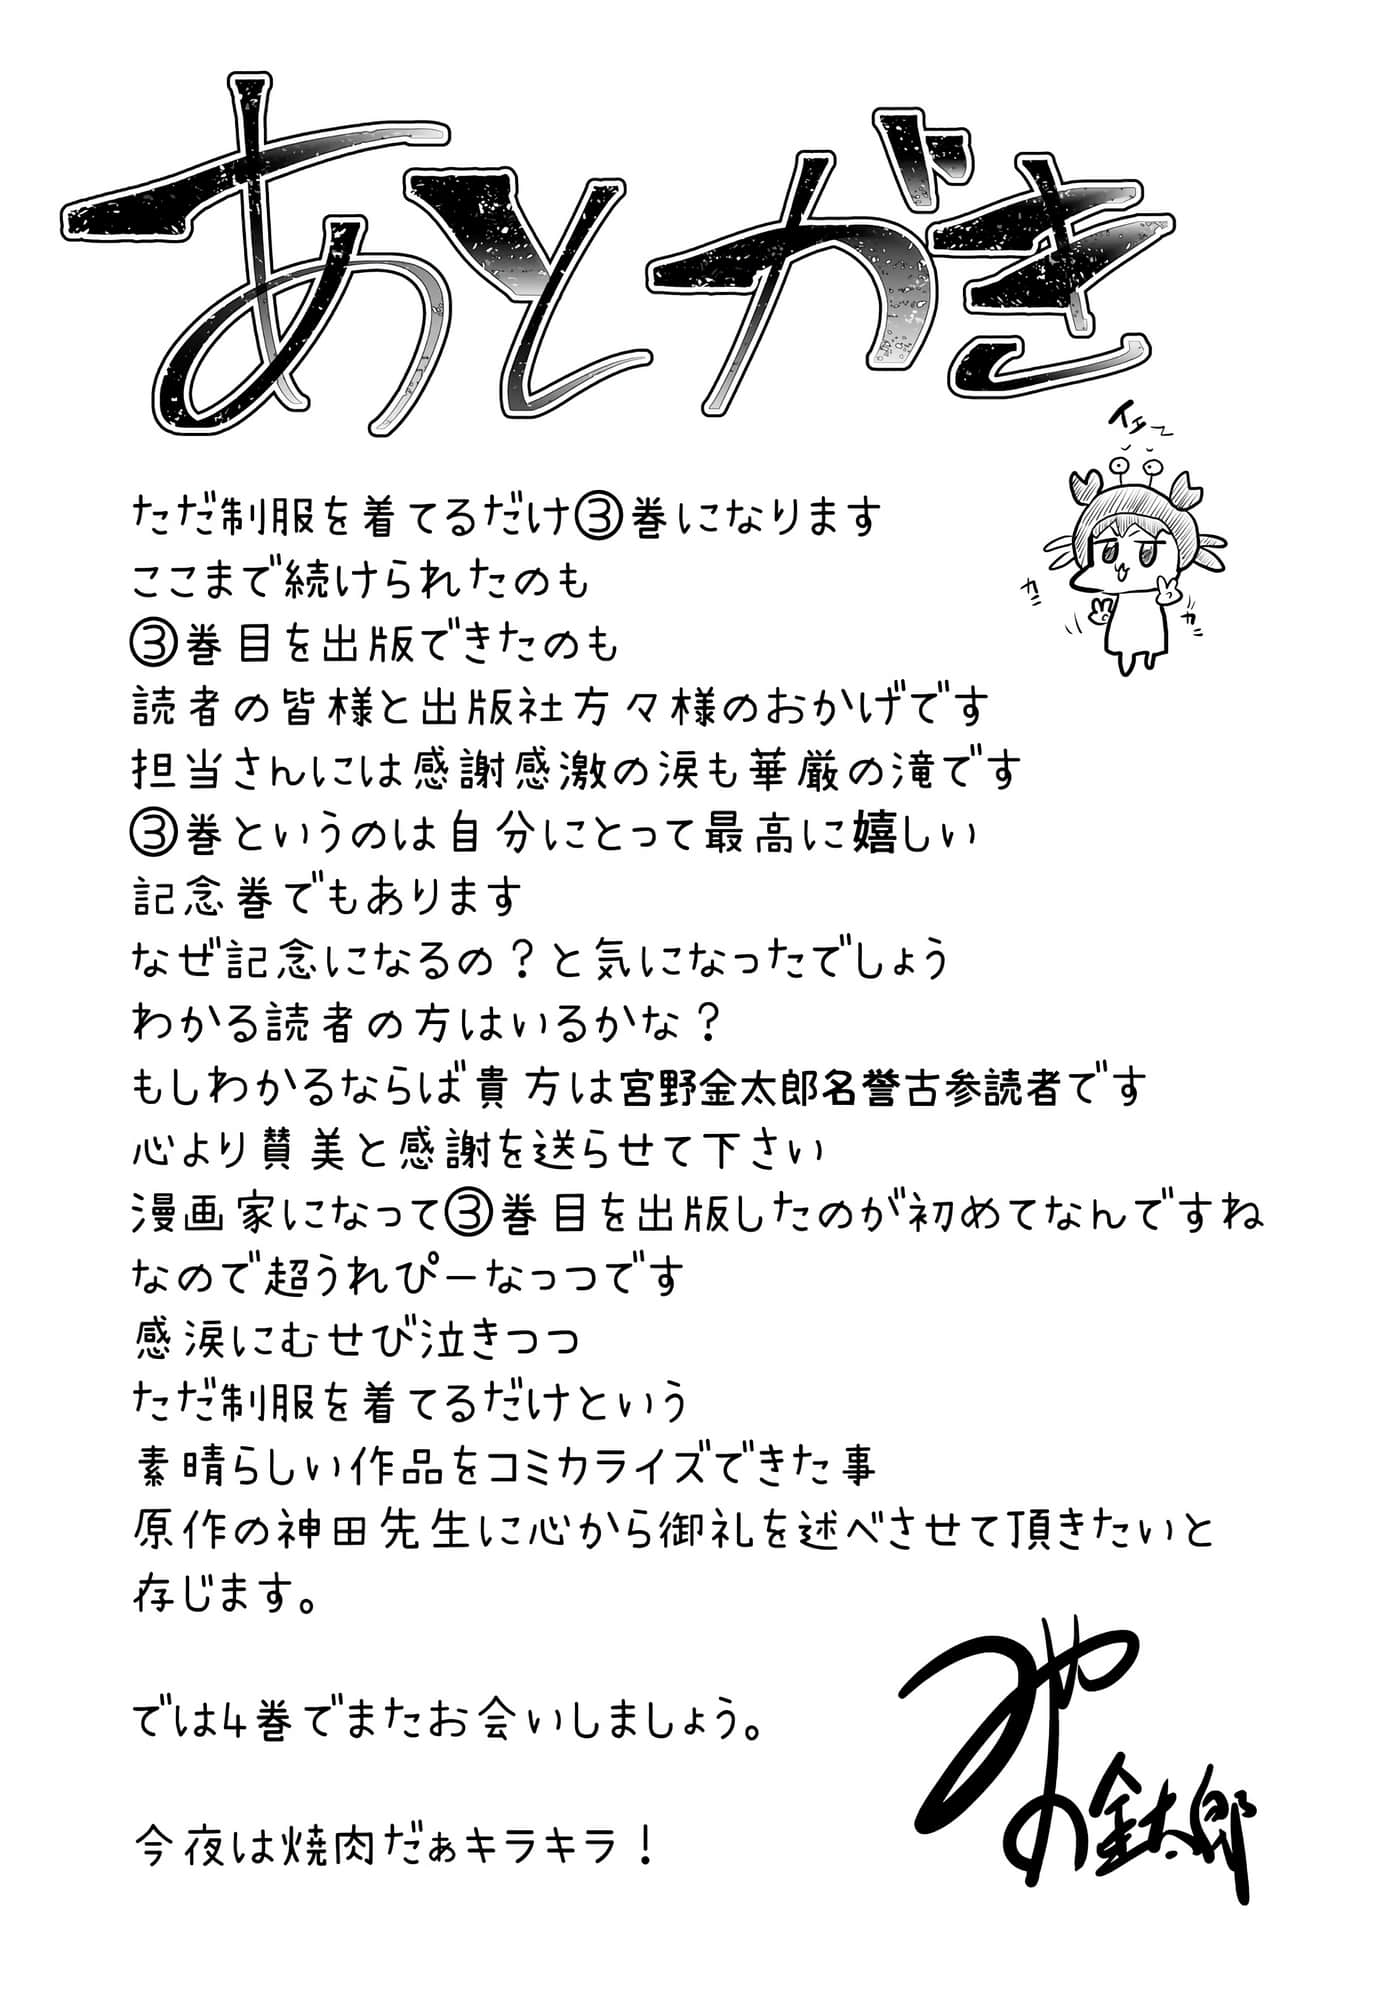 あとがき
イェ〜
ただ制服を着てるだけ③巻になります
ここまで続けられたのも
③巻目を出版できたのも
カニ
カニ
読者の皆様と出版社方々様のおかげです
担当さんには感謝感激の涙も華厳の滝です
③巻というのは自分にとって最高に嬉しい
記念巻でもあります
なぜ記念になるの？と気になったでしょう
わかる読者の方はいるかな？
もしわかるならば貴方は宮野金太郎名誉古参読者です
心より賛美と感謝を送らせて下さい
漫画家になって③巻目を出版したのが初めてなんですね
なので超うれぴーなっつです
感涙にむせび泣きつつ
ただ制服を着てるだけという
素晴らしい作品をコミカライズできた事
原作の神田先生に心から御礼を述べさせて頂きたいと
存じます。
では4巻でまたお会いしましょう。
今夜は焼肉だぁキラキラ！
みやの金太郎